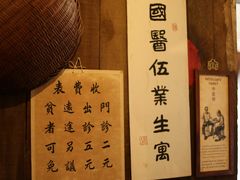 國醫伍業生寓
表費收
門診二元
出診五元
遠途另議
貧者可免